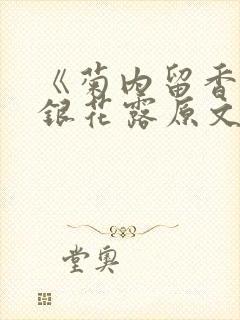 《菊内留香
銀花露原文
堂奥